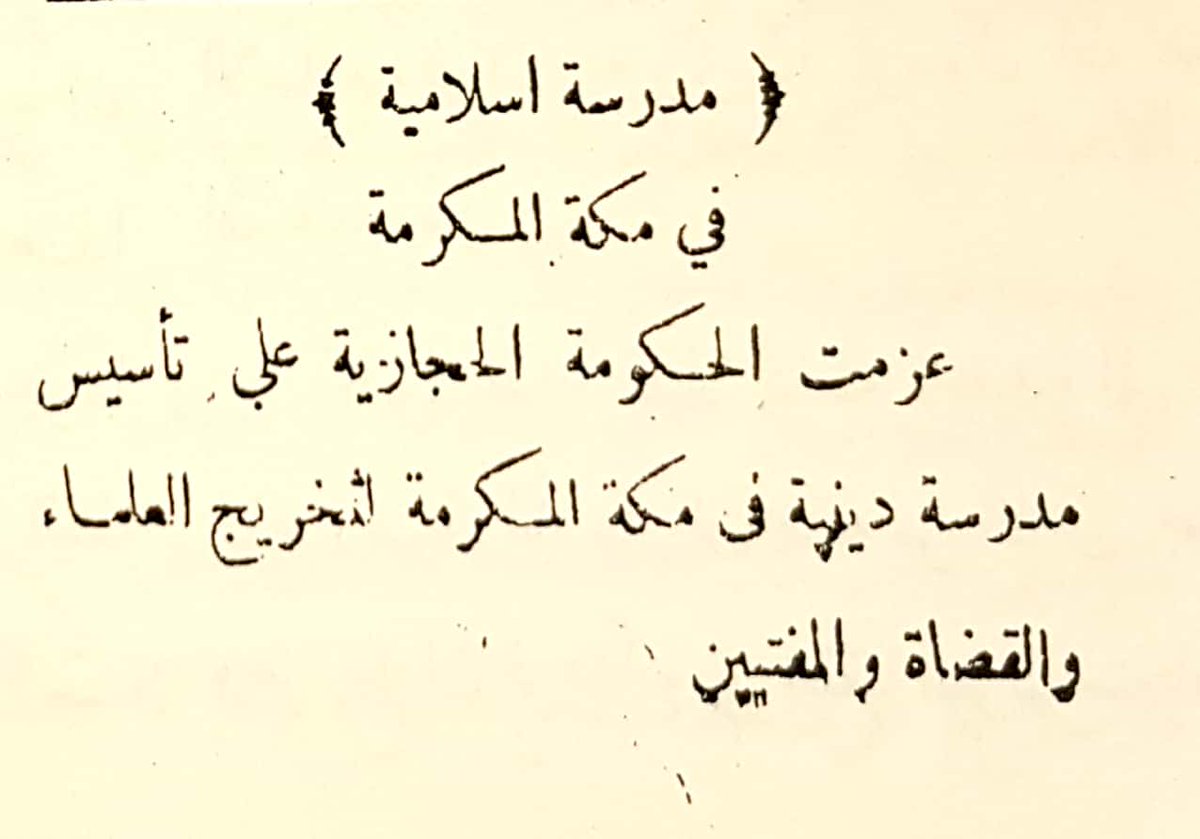 ﴿ مدرسة اسلامية ﴾
في مكة المكرمة
عزمت الحكومة الحجازية علي تأسيس
مدرسة دينية فى مكة المكرمة لتخريج العلماء
والقضاة والمفتيين